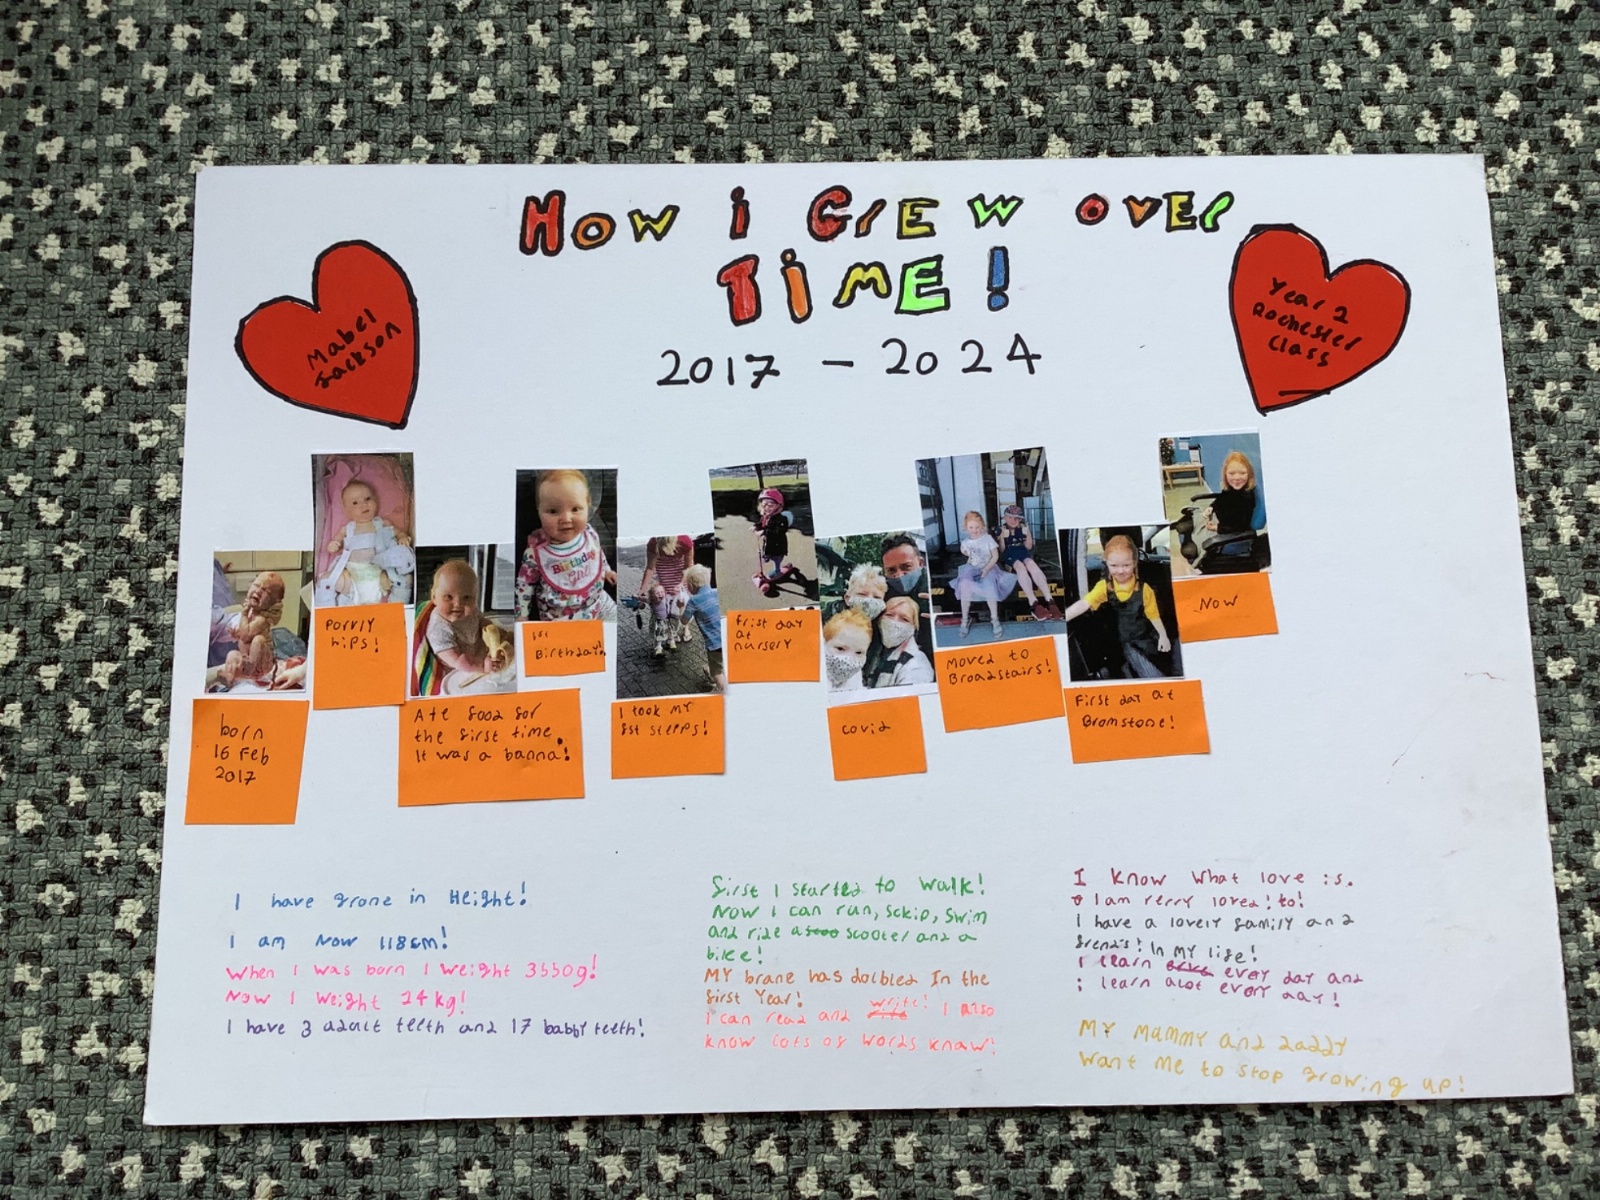 How i Grew over
Time!
2017 - 2024
Mabel
Jackson
Year 2
Rochester
Class
born
16 Feb
2017
Porrly
hips!
Ate food for
the first time.
It was a banna!
1st
Birthday!
I took my
1st stepps!
frist day
at
nursery
covid
Moved to
Broadstairs!
First day at
Bromstone!
Now
I have grone in Height!
I am Now 118cm!
When I was born I weight 3550g!
Now I weight 24kg!
I have 3 adult teeth and 17 babby teeth!
first I started to walk!
Now I can run, sckip, swim
and ride a scooter and a
bike!
My brane has dolbled In the
first Year!
I can read and write! I also
know lots of words knaw!
I Know What love is.
I am verry loved! to!
I have a lovely family and
frends! In my life!
I learn every day and
i learn alot every day!
My Mummy and daddy
want me to stop growing up!